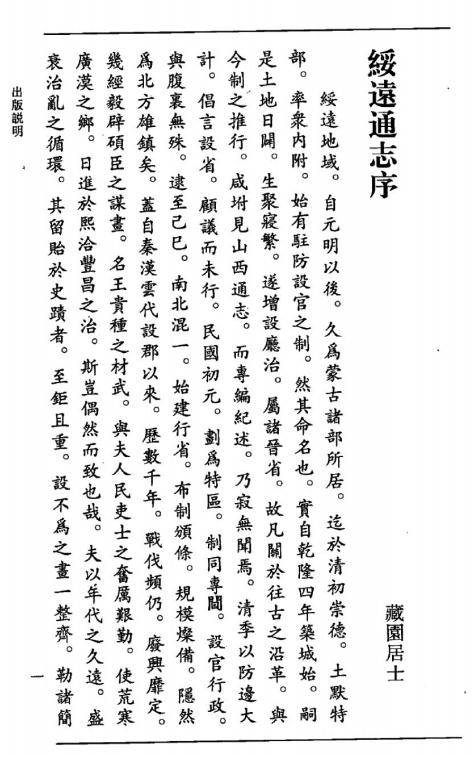 綏遠通志序
藏園居士
綏遠地域。自元明以後。久爲蒙古諸部所居。迄於清初崇德。土默特
部。率衆內附。始有駐防設官之制。然其命名也。實自乾隆四年築城始。嗣
是土地日闢。生聚寖繁。遂增設廳治。屬諸晉省。故凡關於往古之沿革。與
今制之推行。咸坿見山西通志。而專編紀述。乃寂無聞焉。清季以防邊大
計。倡言設省。顧議而未行。民國初元。劃爲特區。制同專閫。設官行政。
與腹裏無殊。逮至己巳。南北混一。始建行省。布制頒條。規模燦備。隱然
爲北方雄鎮矣。蓋自秦漢雲代設郡以來。歷數千年。戰伐頻仍。廢興靡定。
幾經毅辟碩臣之謀畫。名王貴種之材武。與夫人民吏士之奮厲艱勤。使荒寒
廣漠之鄉。日進於熙洽豐昌之治。斯豈偶然而致也哉。夫以年代之久遠。盛
衰治亂之循環。其留貽於史蹟者。至鉅且重。設不爲之畫一整齊。勒諸簡
出版説明
一